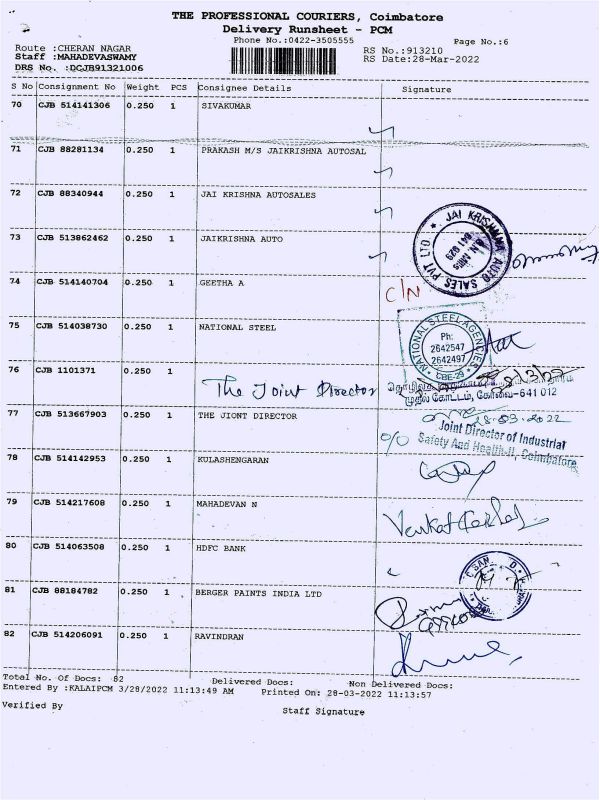 THE PROFESSIONAL COURIERS, Coimbatore
Delivery Runsheet - PCM
Phone No.:0422-3505555
Page No.:6
Route :CHERAN NAGAR
RS No.:913210
Staff :MAHADEVASWAMY
RS Date:28-Mar-2022
DRS No. :DCJB91321006
S No Consignment No Weight PCS Consignee Details Signature
70 CJB 514141306 0.250 1 SIVAKUMAR
71 CJB 88281134 0.250 1 PRAKASH M/S JAIKRISHNA AUTOSAL
72 CJB 88340944 0.250 1 JAI KRISHNA AUTOSALES
JAI KRISHNAA AUTO SALES PVT LTD
641 029
73 CJB 513862462 0.250 1 JAIKRISHNA AUTO
74 CJB 514140704 0.250 1 GEETHA A
C/N
75 CJB 514038730 0.250 1 NATIONAL STEEL
NATIONAL STEEL AGENCIES
Ph:
2642547
2642497
CBE-29
76 CJB 1101371 0.250 1
The Joint Director
முதல் கோட்டம், கோவை-641 012
77 CJB 513667903 0.250 1 THE JIONT DIRECTOR
28.03.2022
Joint Director of Industrial
O/O Safety And Health-II, Coimbatore
78 CJB 514142953 0.250 1 KULASHENGARAN
79 CJB 514217608 0.250 1 MAHADEVAN N
80 CJB 514063508 0.250 1 HDFC BANK
81 CJB 88184782 0.250 1 BERGER PAINTS INDIA LTD
82 CJB 514206091 0.250 1 RAVINDRAN
Total No. Of Docs: 82 Delivered Docs: Non Delivered Docs:
Entered By :KALAIPCM 3/28/2022 11:13:49 AM Printed On: 28-03-2022 11:13:57
Verified By Staff Signature